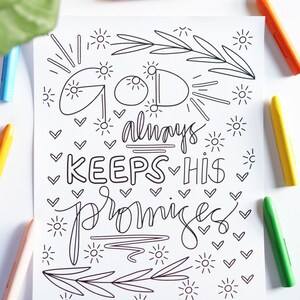 GOD
always
KEEPS HIS
promises